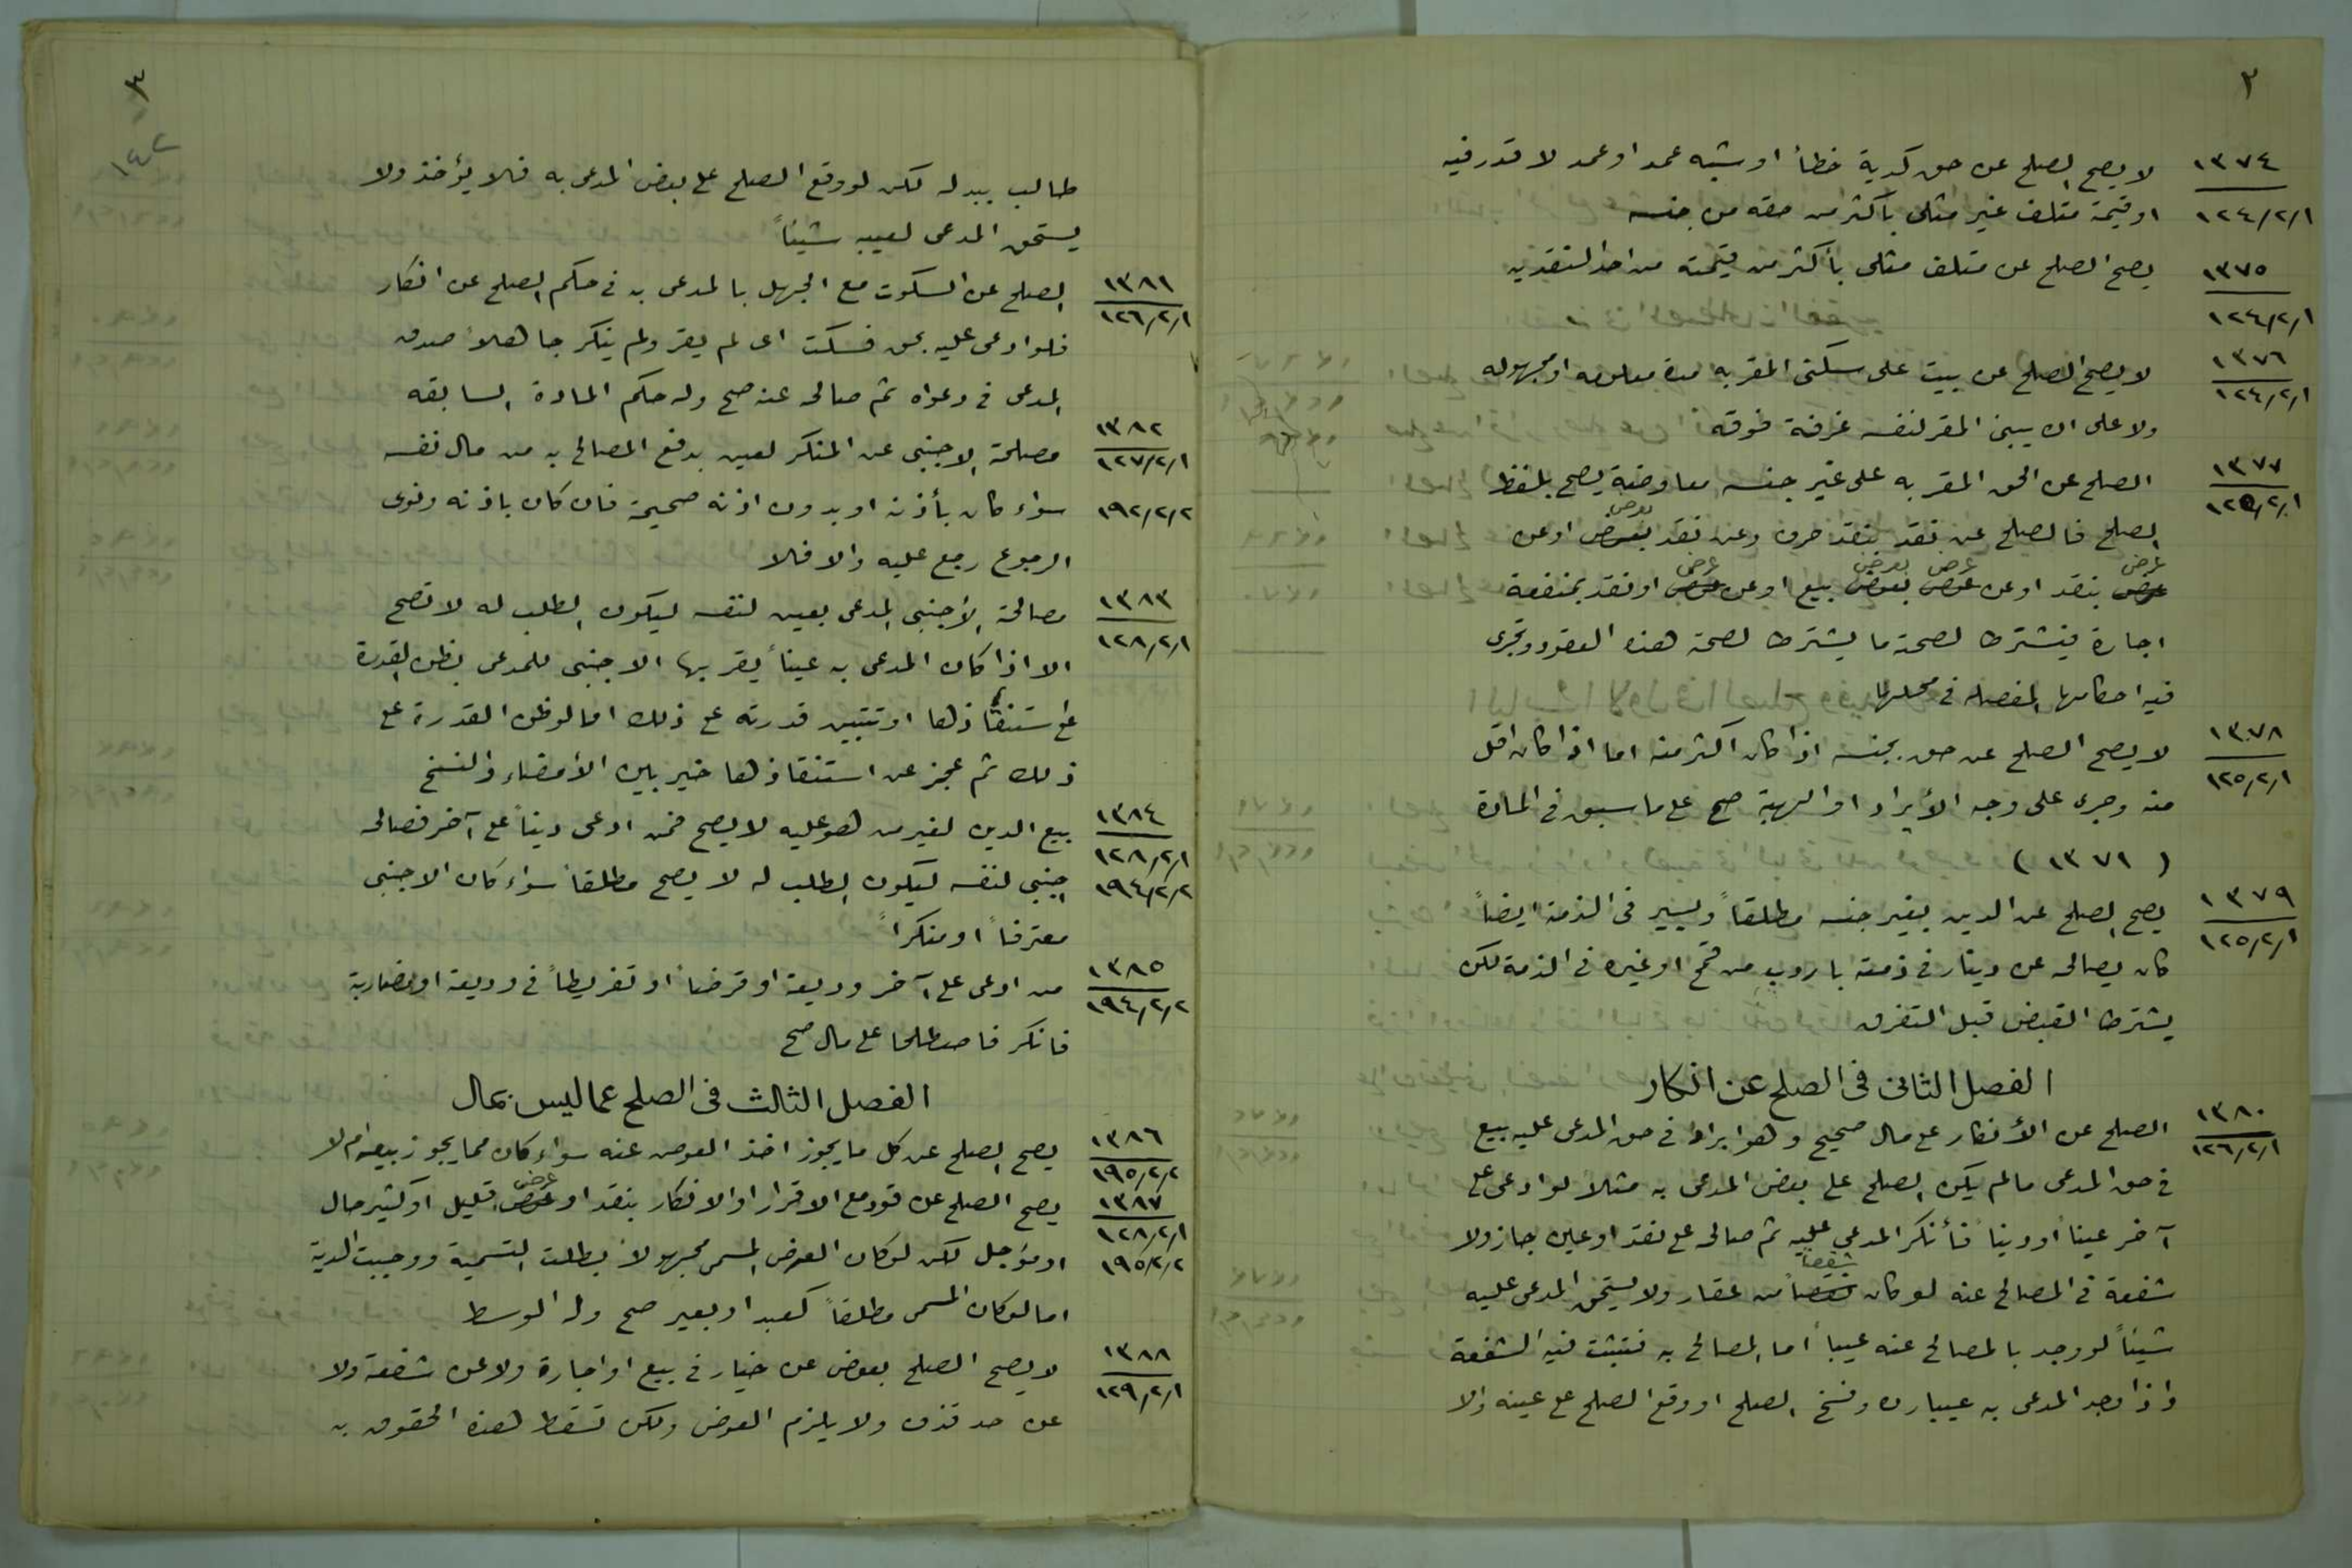 ٢
١٣٧٤
١٢٤/٢/١
لا يصح الصلح عن حق كدية خطأ او شبه عمد او عمد لا قود فيه
او قيمة متلف غير مثلى بأكثر من حقه من جنسه
١٣٧٥
١٢٤/٢/١
يصح الصلح عن متلف مثلى بأكثر من قيمته من احد النقدين
١٣٧٦
١٢٤/٢/١
لا يصح الصلح عن بيت على سكنى المقر به مدة معلومه او مجهوله
ولا على ان يبنى المقر لنفسه غرفة فوقه
١٣٧٧
١٢٥/٢/١
الصلح عن الحق المقر به على غير جنسه معاوضة يصح بلفظ
الصلح فالصلح عن نقد بنقد صرف وعن نقد بعرض او عن
عرض بنقد او عن عرض بعرض بيع او عن عرض او نقد بمنفعة
اجارة فيشترط لصحته ما يشترط لصحة هذه العقود وتجرى
فيه احكامها المفصله فى محلها
١٣٧٨
١٢٥/٢/١
لا يصح الصلح عن حق بجنسه اذا كان اكثر منه اما اذا كان اقل
منه وجرى على وجه الأبراء او الهبة صح على ما سبق فى المادة
( ١٣٧١ )
١٣٧٩
١٢٥/٢/١
يصح الصلح عن الدين بغير جنسه مطلقاً وبيسير فى الذمة ايضاً
كان يصالحه عن دينار فى ذمته باردب من قمح او غيره فى الذمة لكن
يشترط القبض قبل التفرق
الفصل الثانى فى الصلح عن انكار
١٣٨٠
١٢٦/٢/١
الصلح عن الأنكار على مال صحيح وهو ابراء فى حق المدعى عليه بيع
فى حق المدعى مالم يكن الصلح على بعض المدعى به مثلاً لو ادعى على
آخر عيناً او ديناً فأنكر المدعى عليه ثم صالحه على نقد او عين جاز ولا
شفعة فى المصالح عنه لو كان شقصاً من عقار ولا يستحق المدعى عليه
شيئاً لو وجد بالمصالح عنه عيباً اما المصالح به فتثبت فيه الشفعة
واذا وجد المدعى به عيبا رده وفسخ الصلح او وقع الصلح على عينه والا
٣
١٤٢
طالب ببدله لكن لو وقع الصلح على بعض المدعى به فلا يؤخذ ولا
يستحق المدعى لعيبه شيئاً
١٣٨١
١٢٦/٢/١
الصلح عن السكوت مع الجهل بالمدعى به فى حكم الصلح عن انكار
فلو ادعى عليه بحق فسكت اى لم يقر ولم ينكر جاهلاً صدق
المدعى فى دعواه ثم صالحه عنه صح وله حكم المادة السابقه
١٣٨٢
١٢٧/٢/١
١٩٢/٢/٢
مصلحة الاجنبى عن المنكر لعين بدفع المصالح به من مال نفسه
سواء كان بأذنه او بدون اذنه صحيحة فان كان باذنه ونوى
الرجوع رجع عليه والا فلا
١٣٨٣
١٢٨/٢/١
مصالحة الأجنبى المدعى بعين لنفسه ليكون الطلب له لا تصح
الا اذا كان المدعى به عيناً يقر بها الاجنبى للمدعى بظن القدرة
على استنقاذها او تتبين قدرته على ذلك اما لو ظن القدرة على
ذلك ثم عجز عن استنقاذها خير بين الأمضاء والفسخ
١٣٨٤
١٢٨/٢/١
١٩٤/٢/٢
بيع الدين لغير من هو عليه لا يصح فمن ادعى ديناً على آخر فصالحه
اجنبى لنفسه ليكون الطلب له لا يصح مطلقاً سواء كان الاجنبى
معترفاً او منكراً
١٣٨٥
١٩٤/٢/٢
من ادعى على آخر وديعة او قرضاً او تفريطاً فى وديعة او مضاربة
فانكر فاصطلحا على مال صح
الفصل الثالث فى الصلح عما ليس بمال
١٣٨٦
١٩٥/٢/٢
يصح الصلح عن كل ما يجوز اخذ العوض عنه سواء كان مما يجوز بيعه ام لا
١٣٨٧
١٢٨/٢/١
١٩٥/٢/٢
يصح الصلح عن قود مع الاقرار او الانكار بنقد او عرض قليل او كثير حال
او مؤجل لكن لو كان العوض المسمى مجهولاً بطلت التسمية ووجبت الدية
اما لو كان المسمى مطلقاً كعبد او بعير صح وله الوسط
١٣٨٨
١٢٩/٢/١
لا يصح الصلح بعوض عن خيار فى بيع او اجارة ولا عن شفعة ولا
عن حد قذف ولا يلزم العوض ولكن تسقط هذه الحقوق به